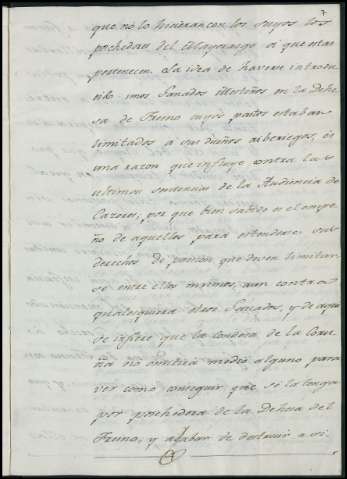 7
que no lo hicieran con los suyos los
poshedari del Mayorazgo a que estas
pertenecen. La idea de haverse introdu
cido unos Ganados Mesteños en la Dehe
sa de Fresno cuyos pastos estaban
limitados a sus dueños es
una razon que influye contra las
ultimas sentencias de la Audiencia de
Cazeres, por que bien sabido es el empe
ño de aquellos para estender sus
derechos de posesion que deven limitar
se entre ellos mismos, aun contra
qualesquiera otros Ganados, y de aqui
se infiere que la Condesa de la Coru
ña no omitirá medio alguno para
ver como conseguir que se la tenga
por poshedora de la Dehesa del
Fresno, y acaban de destruir a mi